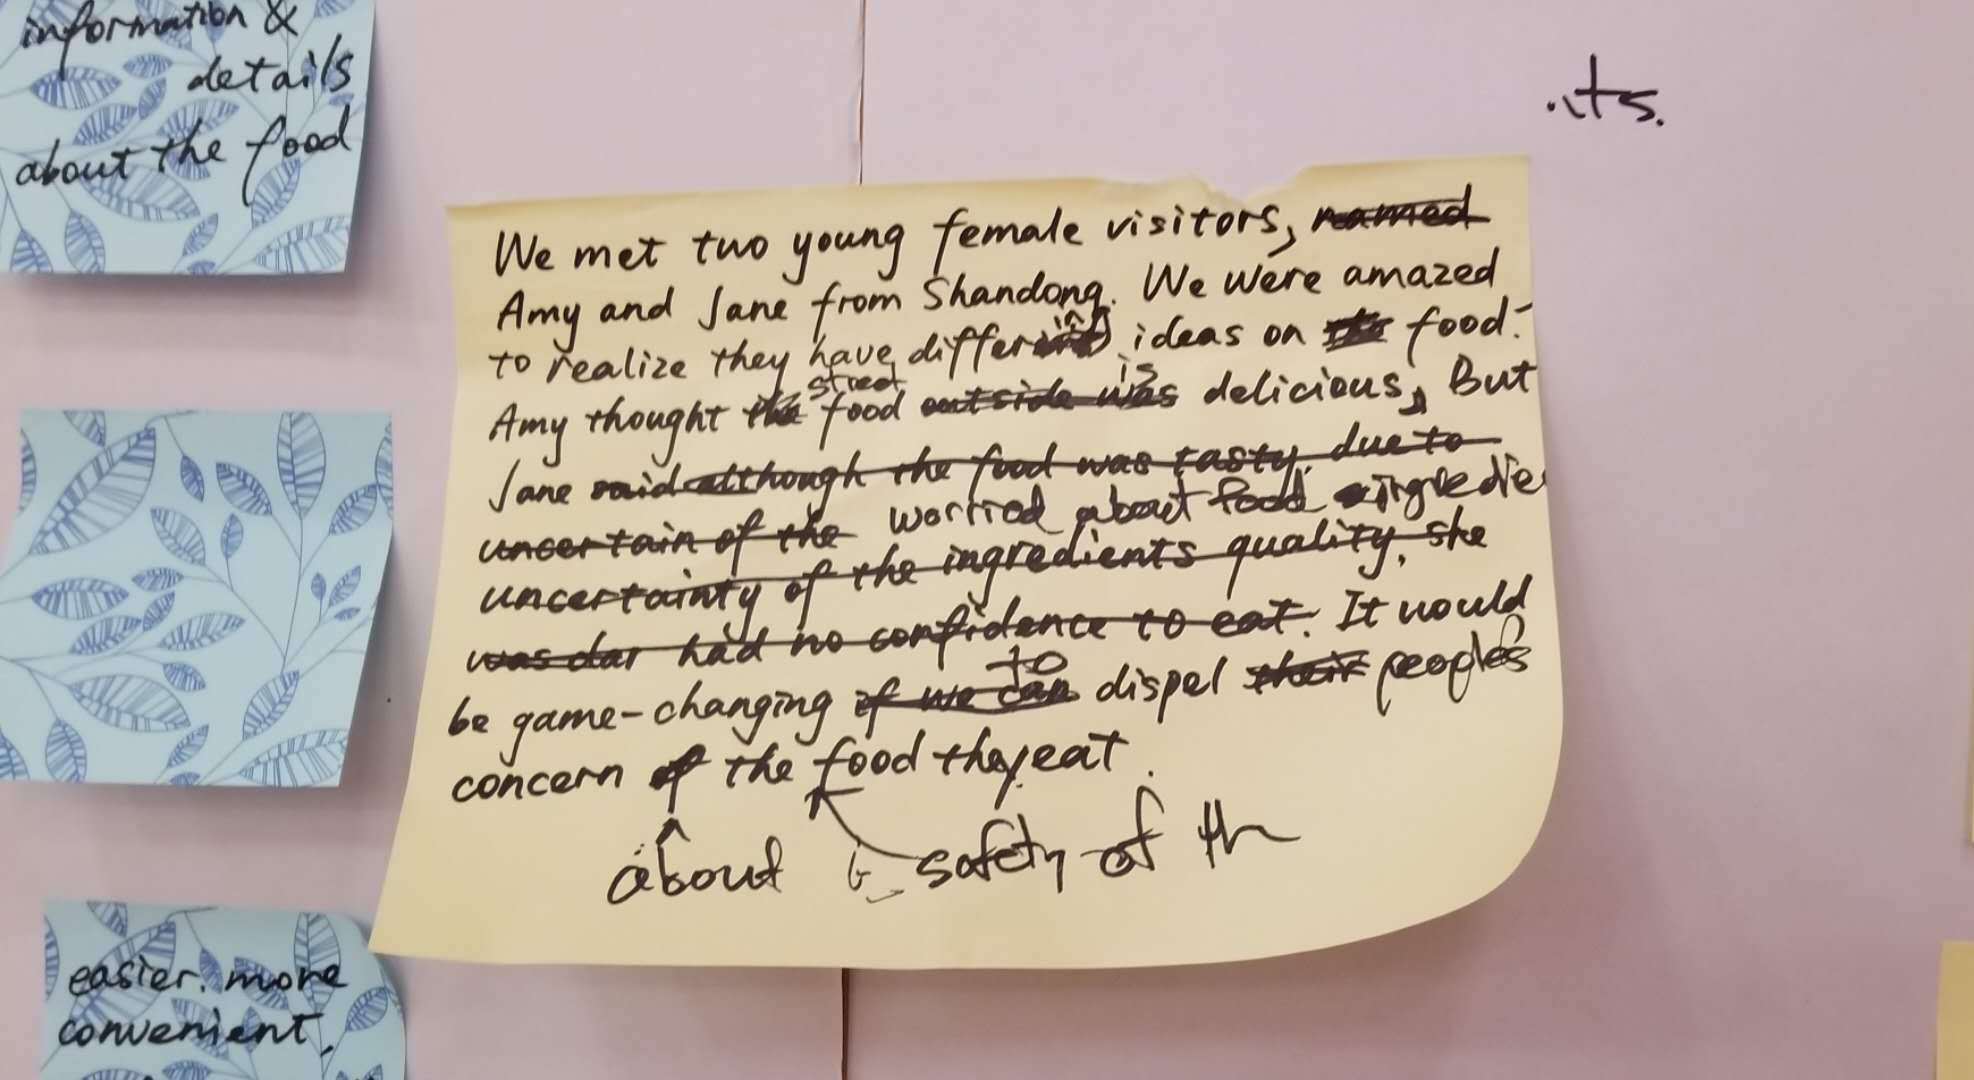 information &
details
about the food
.ts.
We met two young female visitors, named
Amy and Jane from Shandong. We were amazed
to realize they have differing ideas on food.
street is
Amy thought the food outside was delicious, But
Jane said although the food was tasty, due to
uncertain of the worried about food ingredie
uncertainty of the ingredients quality, she
was dar had no confidence to eat. It would
to
be game-changing if we can dispel their peoples
concern of the food they eat.
about safety of th
easier. more
convenient,